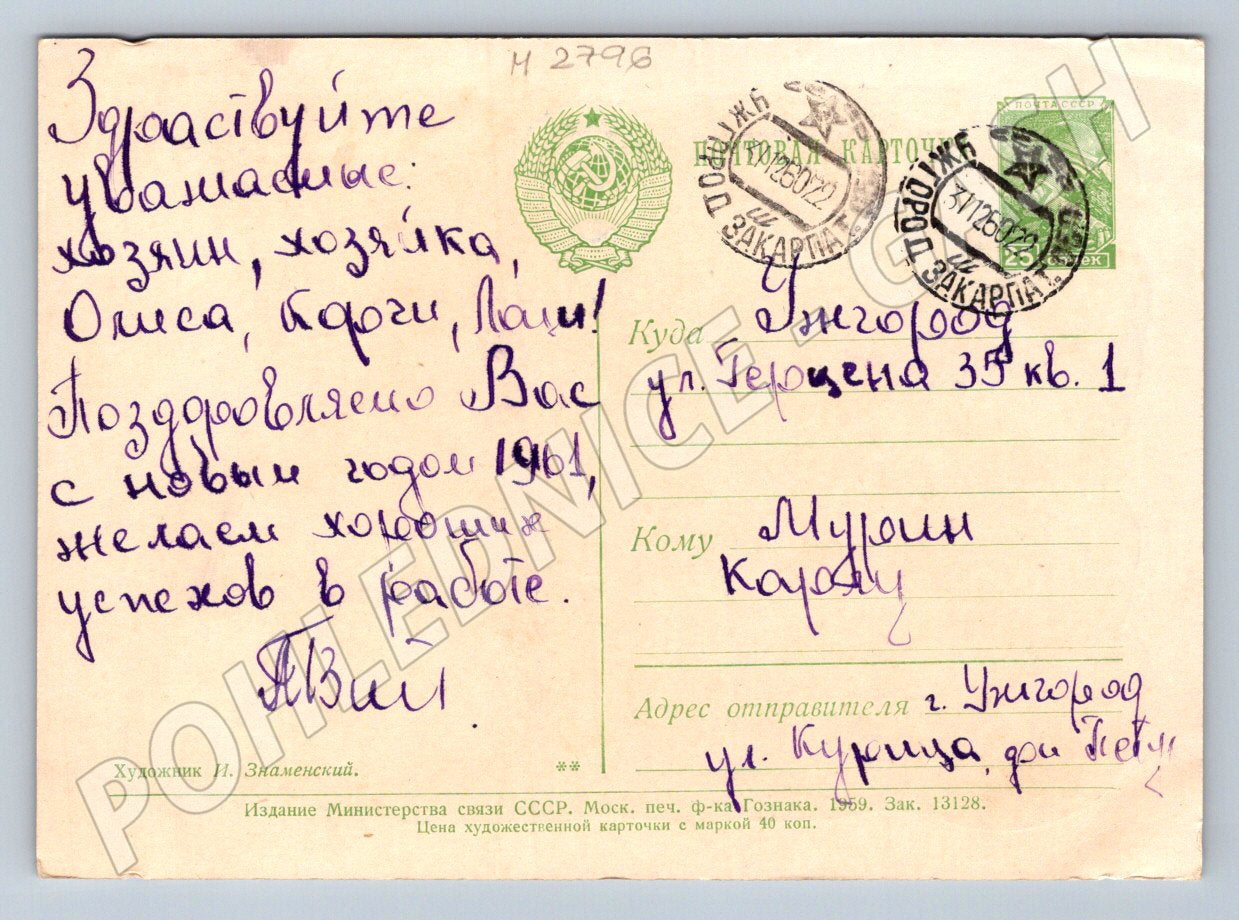 И 2796
Здрааствуйте
уважаемые:
хозяин, хозяйка,
Поздоровляемо Вас
с новым годом 1961,
желаем хороших
успехов в работе.
ПОЧТОВАЯ КАРТОЧКА
ПОЧТА СССР
25 КОПЕЕК
УЖГОРОД ЗАКАРПАТ.
УЖГОРОД ЗАКАРПАТ.
Куда Ужгород
ул. Герцена 35 кв. 1
Кому
Адрес отправителя г. Ужгород
ул. дом
Художник И. Знаменский.
**
Издание Министерства связи СССР. Моск. печ. ф-ка Гознака. 1959. Зак. 13128.
Цена художественной карточки с маркой 40 коп.
POHLEDNICE.CH